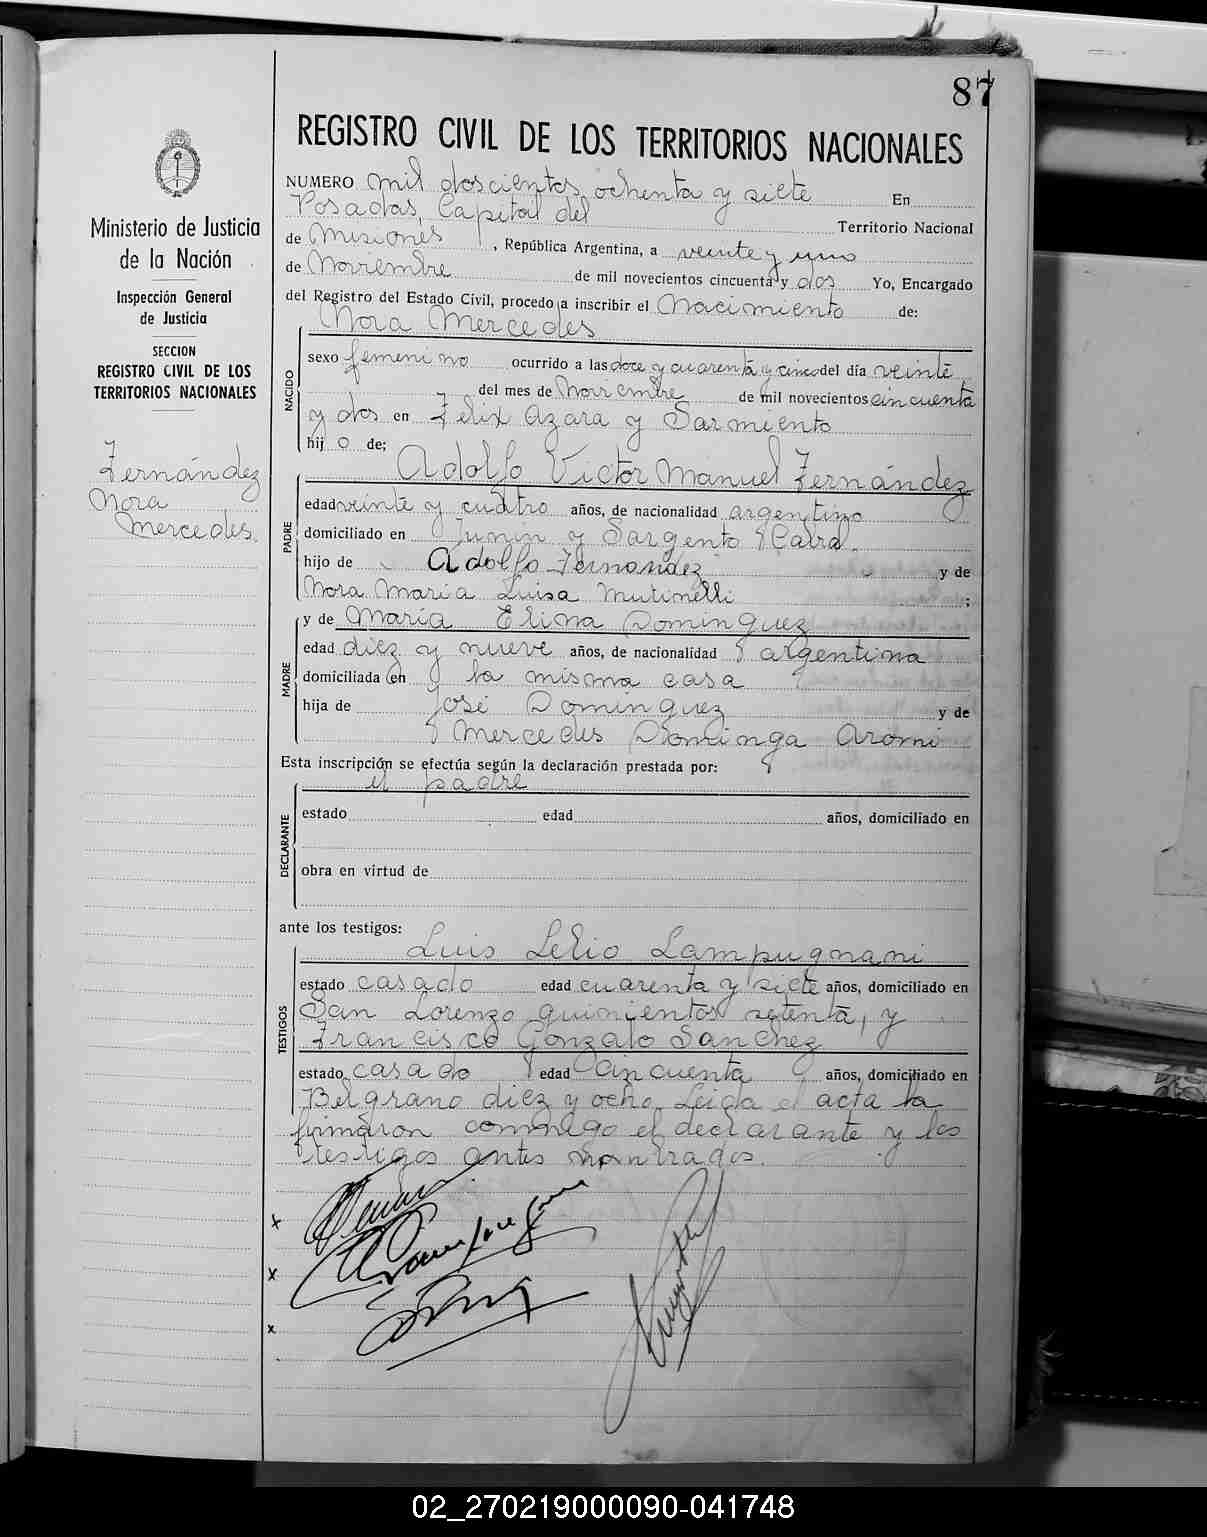 87
REGISTRO CIVIL DE LOS TERRITORIOS NACIONALES
Ministerio de Justicia
de la Nación
Inspección General
de Justicia
SECCION
REGISTRO CIVIL DE LOS
TERRITORIOS NACIONALES
Fernández
Nora
Mercedes.
NUMERO mil doscientos ochenta y siete En
Posadas, Capital del Territorio Nacional
de Misiones, República Argentina, a veinte y uno
de Noviembre de mil novecientos cincuenta y dos Yo, Encargado
del Registro del Estado Civil, procedo a inscribir el Nacimiento de:
Nora Mercedes
NACIDO
sexo femenino ocurrido a las doce y cuarenta y cinco del día veinte
del mes de Noviembre de mil novecientos cincuenta
y dos en Felix Azara y Sarmiento
hij o de;
Adolfo Victor Manuel Fernández
PADRE
edad veinte y cuatro años, de nacionalidad argentino
domiciliado en Junin y Sargento Cabral.
hijo de Adolfo Fernandez y de
Nora Maria Luisa Mutinelli ;
y de Maria Elina Dominguez
MADRE
edad diez y nueve años, de nacionalidad argentina
domiciliada en la misma casa
hija de José Dominguez y de
Mercedes Dominga Aromi
Esta inscripción se efectúa según la declaración prestada por:
el padre
DECLARANTE
estado edad años, domiciliado en
obra en virtud de
ante los testigos:
Luis Lelio Lampugnani
TESTIGOS
estado casado edad cuarenta y siete años, domiciliado en
San Lorenzo quinientos setenta, y
Francisco Gonzalo Sanchez
estado casado edad Cincuenta años, domiciliado en
Belgrano diez y ocho. Leida el acta la
firmaron conmigo el declarante y los
testigos antes nombrados.
x
x
x
02_270219000090-041748